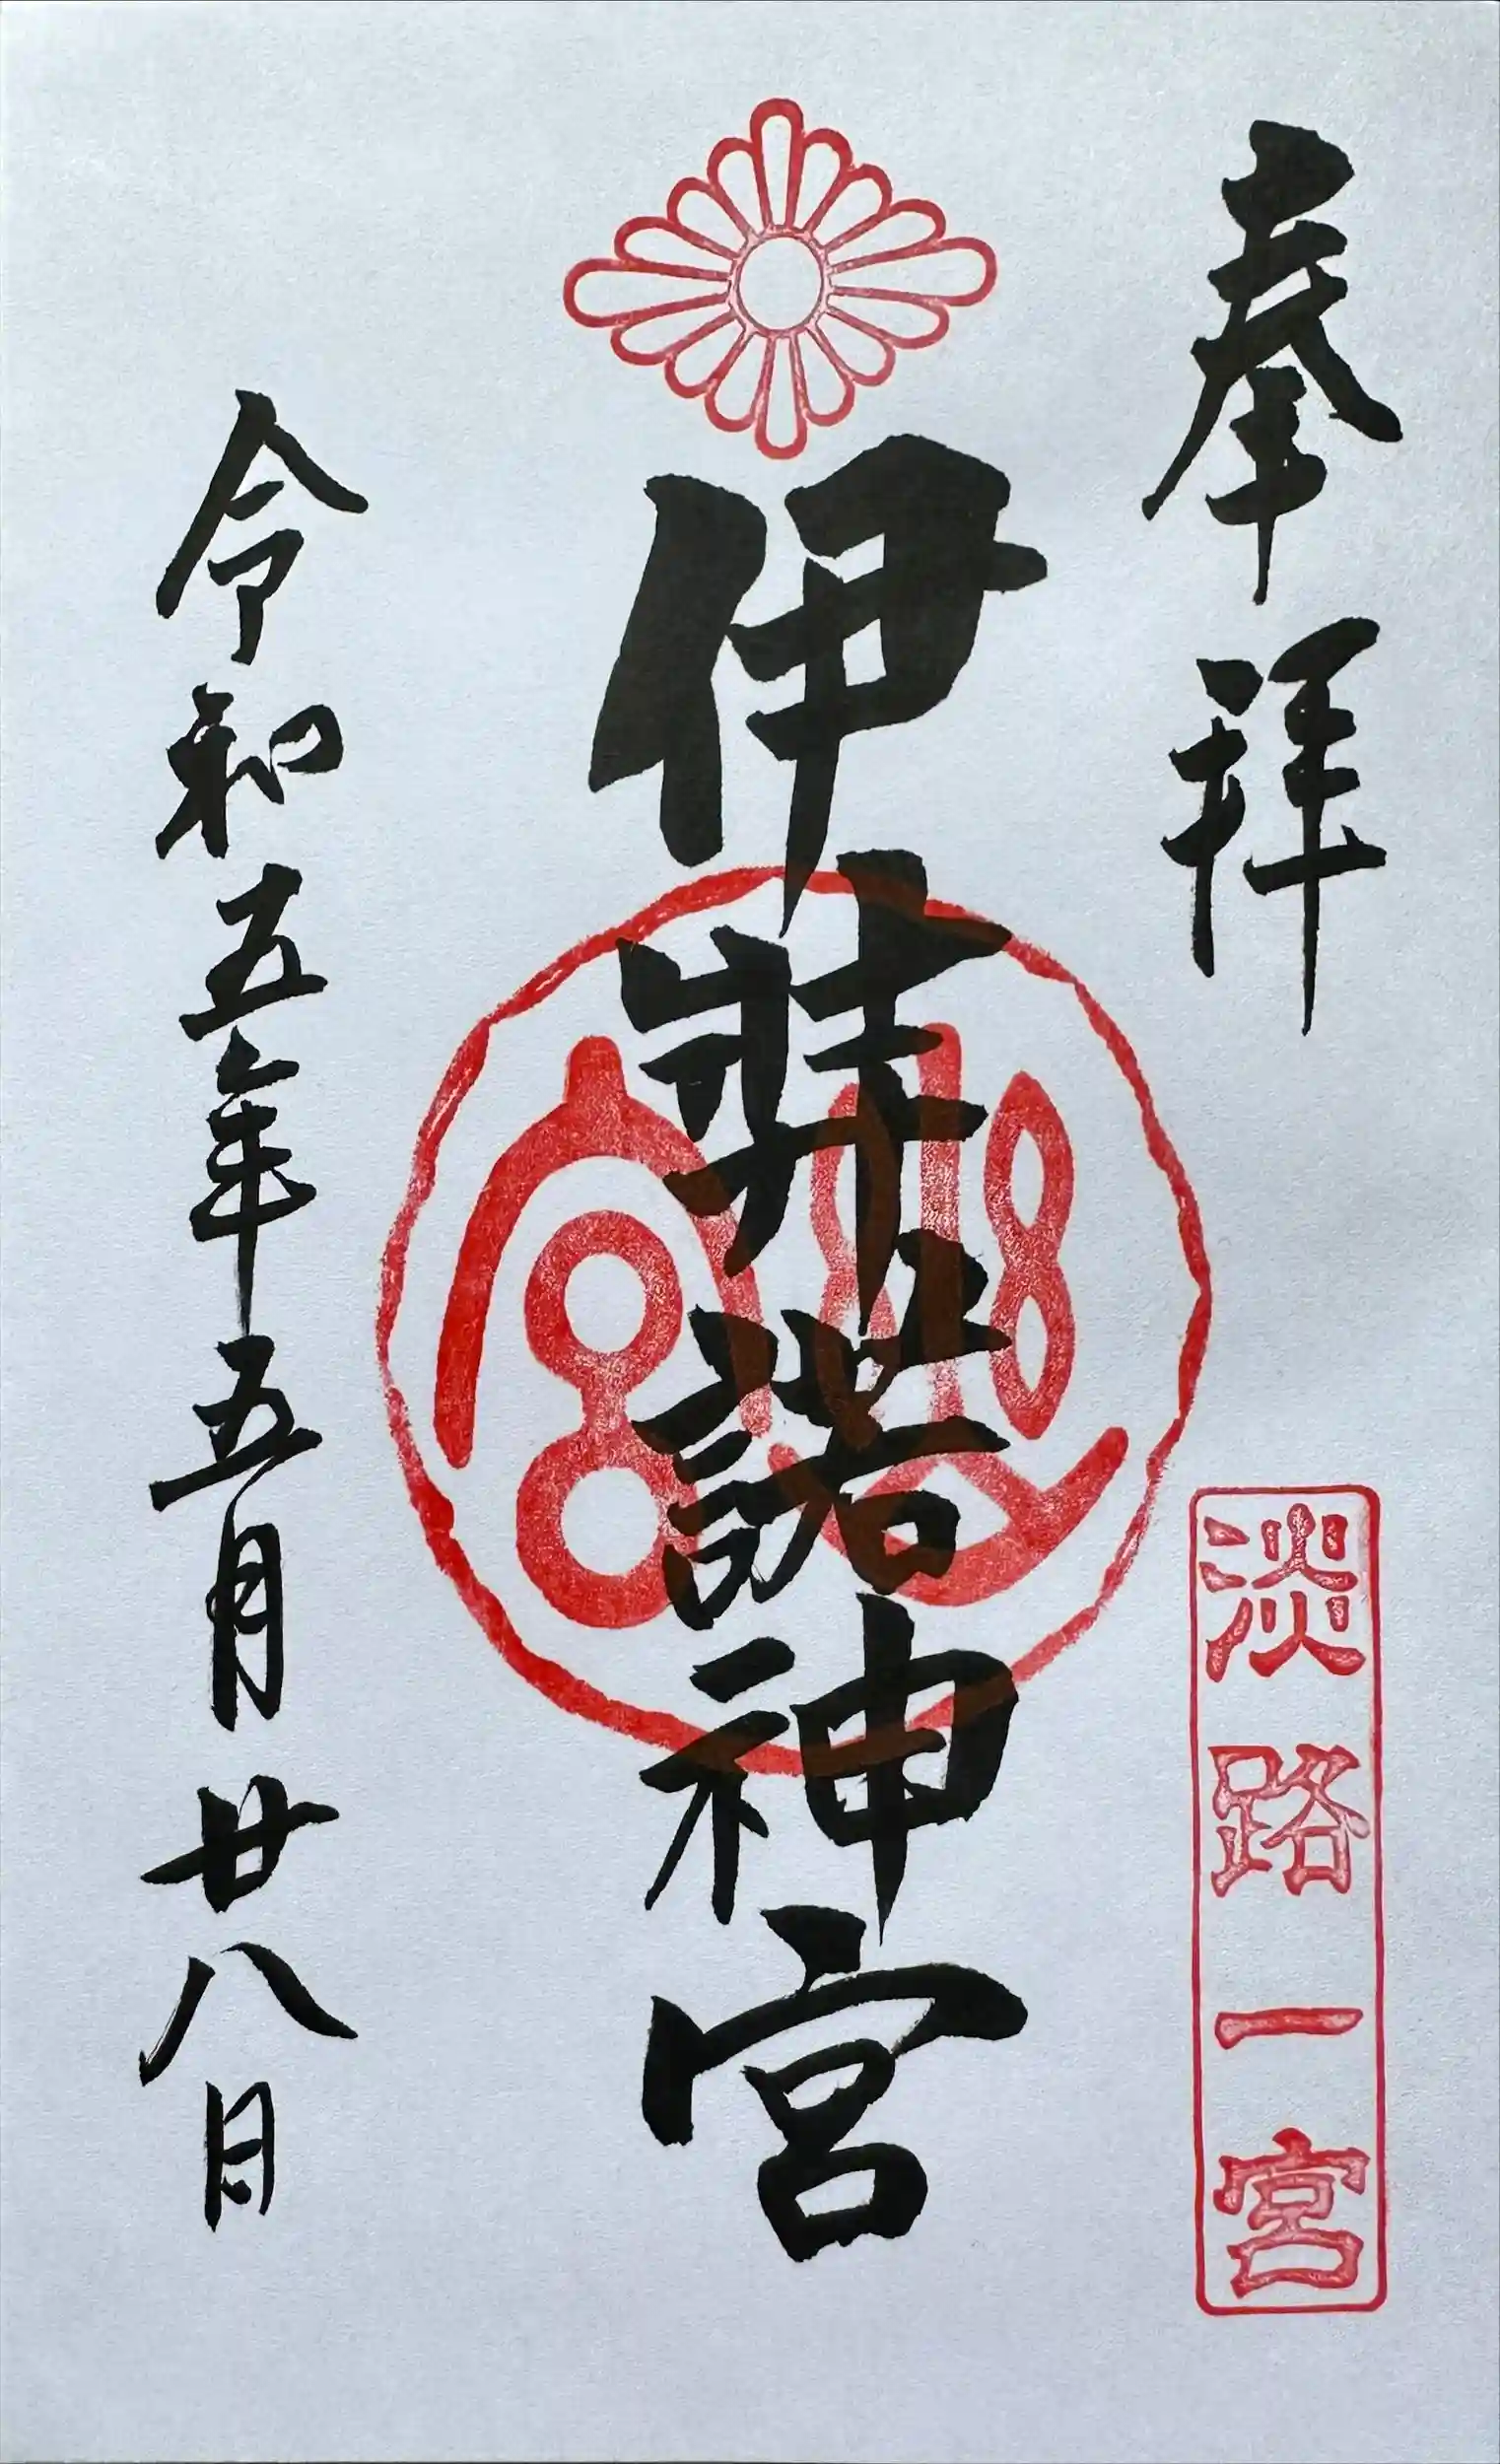 奉拝
淡路一宮
伊弉諾神宮
幽宮
令和五年五月廿八日